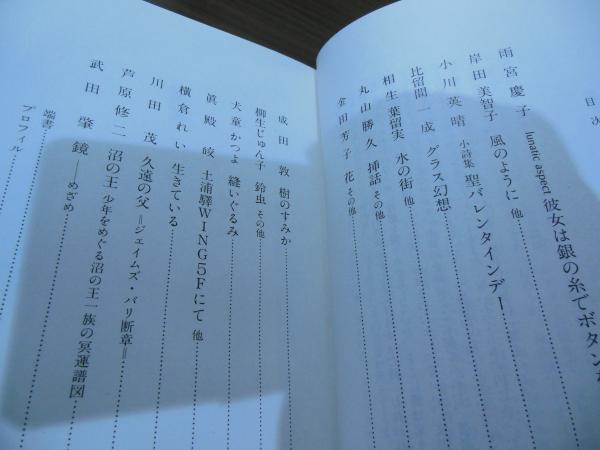 目次
雨宮慶子 lunatic aspect 彼女は銀の糸でボタンを
岸田美智子 風のように 他
小川英晴 小詩集 聖バレンタインデー
比留間一成 グラス幻想
相生葉留実 水の街 他
丸山勝久 挿話 その他
金田芳子 花 その他
成田敦 樹のすみか
柳生じゅん子 鈴虫 その他
犬童かつよ 縫いぐるみ
真殿皎 土浦驛WING5Fにて 他
横倉れい 生きている
川田茂 久遠の父 =ジェイムズ・バリ断章=
芦原修二 沼の王 少年をめぐる沼の王一族の冥運譜図
武田肇 鏡 ――めざめ
端書
プロフィール